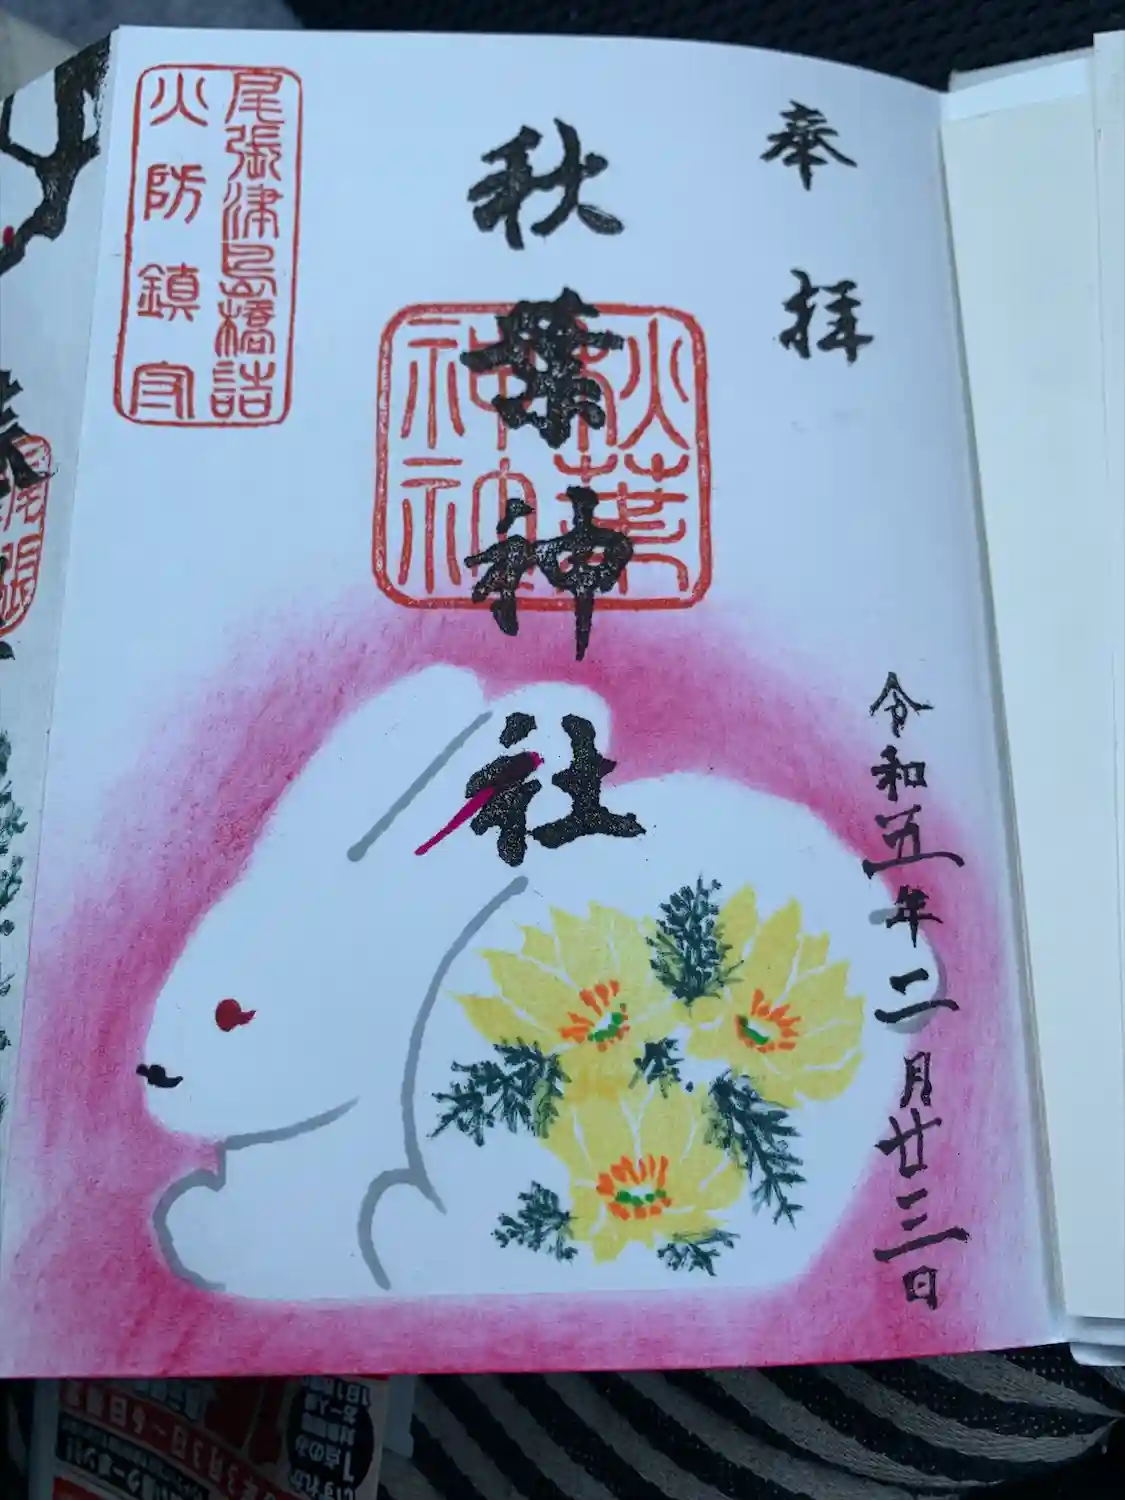 奉拝
秋葉神社
秋葉
神社
尾張津島橋詰
火防鎮守
令和五年二月廿三日
尾張